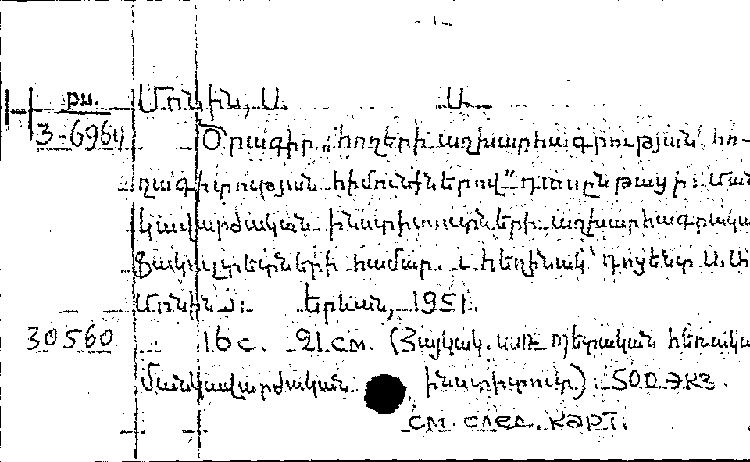 րս. Մոնին, Ս. Ա.
3-6964 Օրագիր „հողերի աշխարհագրության հո-
ղագիտության հիմունքներով" դասընթացի: Ման
կավարժական ինստիտուտների աշխարհագրակա
ֆակուլտետների համար. հեղինակ՝ դոցենտ Ս. Ա.
Մոնին: Երևան, 1951.
30560 16 с. 21 см. (Հայկակ. սսռ պետական հեռակա
մանկավարժական ինստիտուտ). 500 экз.
см. след. карт.